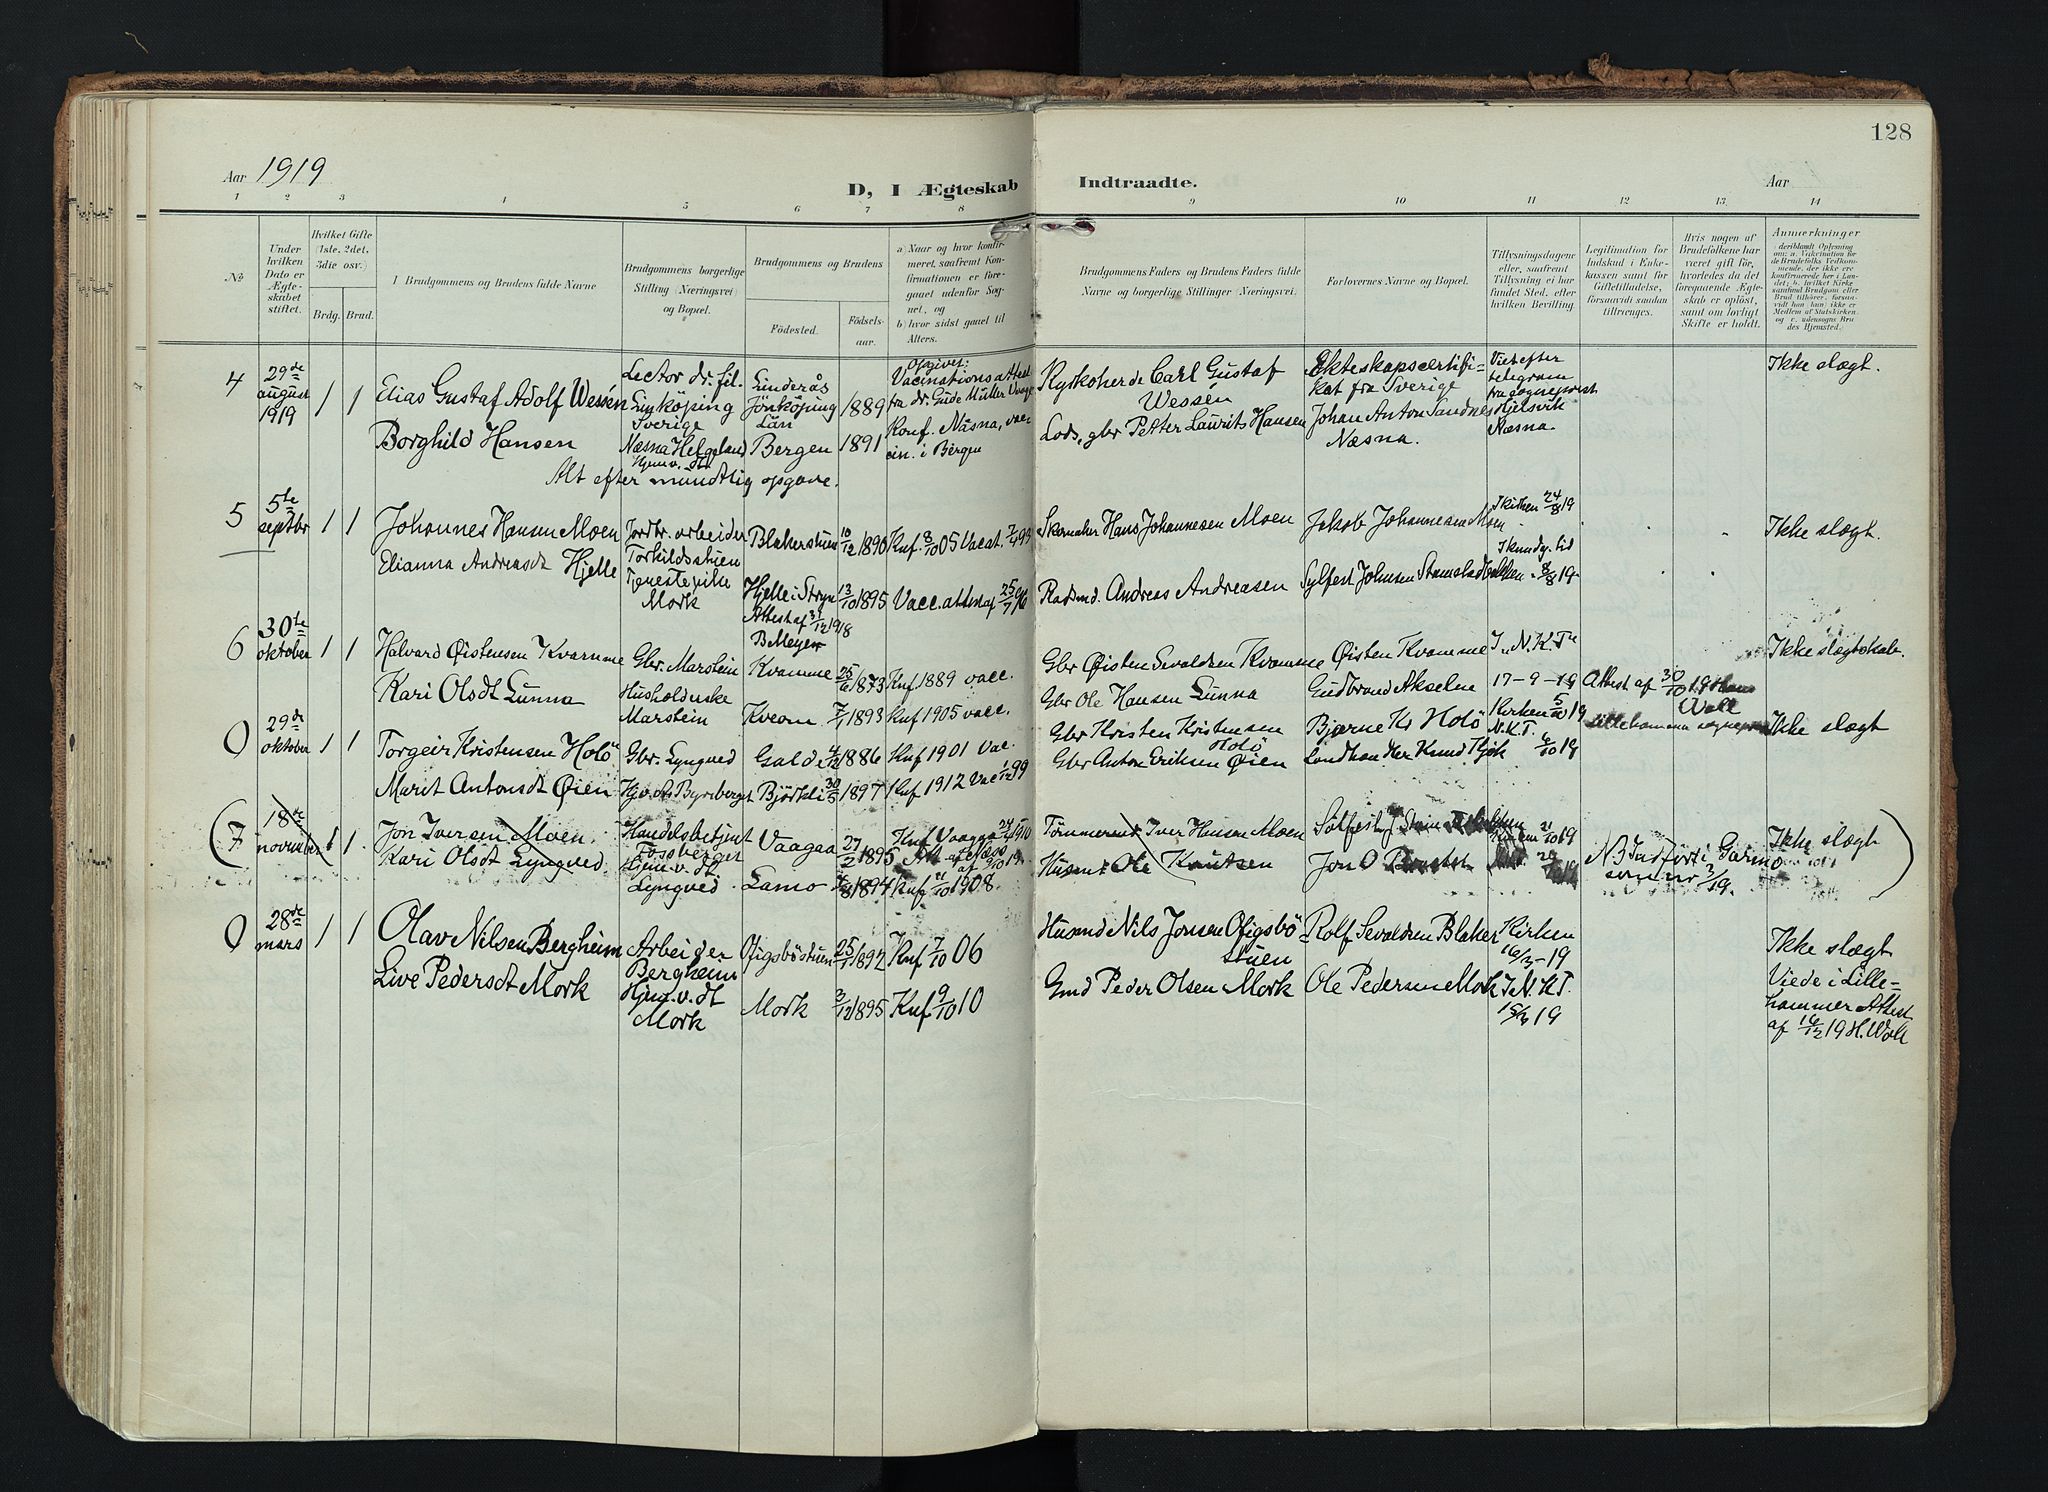 128
Aar 1919
D, I Ægteskab Indtraadte.
Aar
1 2 3 4 5 6 7 8 9 10 11 12 13 14
No.
Under hvilken Dato er Ægteskabet stiftet.
Hvilket Gifte (1ste, 2det, 3die osv.)
Brdg. Brud.
I Brudgommens og Brudens fulde Navne
Brudgommens borgerlige Stilling (Næringsvei) og Bopæl.
Brudgommens og Brudens
Fødested.
Fødselsaar.
a) Naar og hvor konfirmeret, saafremt Konfirmationen er foregaaet udenfor Sognet, og
b) hvor sidst gaaet til Alters.
Brudgommens Faders og Brudens Faders fulde Navne og borgerlige Stillinger (Næringsvei).
Forlovernes Navne og Bopæl.
Tillysningsdagene eller, saafremt Tillysning ei har fundet Sted, efter hvilken Bevilling
Legitimation for Indskud i Enkekassen samt for Giftetilladelse, forsaavidt saadan tiltrænges.
Hvis nogen af Brudefolkene har været gift før, hvorledes da det foregaaende Ægteskab er opløst, samt om lovligt Skifte er holdt.
Anmerkninger
deriblandt Oplysning om: a. Vakcination for de Brudefolks Vedkommende, der ikke ere konfirmerede her i Landet; b. hvilket Kirkesamfund Brudgom eller Brud tilhører, forsaavidt han (hun) ikke er Medlem af Statskirken, og c. udensogns Brudes Hjemsted.
4 29de august 1919 1 1
Elias Gustaf Adolf Wessén
Lector dr. fil. Linköping Sverige
Linderås Jönköping Län 1889
Opgivet: Vacinationsattest fra dr. Gude Müller Vaage
Kyrkoherde Carl Gustaf Wessén
Ekteskapscertifikat fra Sverige
Viet efter telegram fra sogneprest Hjelsvik Næsna.
Ikke slægt.
Borghild Hansen
Næsna Helgeland Hjem.v. dt.
Bergen 1891
Konf. Näsna, vaccin. i Bergen
Lods, gbr Petter Laurits Hansen
Johan Anton Sandnes Næsna.
Alt efter mundtlig opgave.
5 5te septbr 1 1
Johannes Hansen Moen
Jordbr. arbeider Torkildsstuen
Blakerstuen 10/12 1890
Knf. 8/10 05 Vacat. 7/4 93
Skomaker Hans Johannesen Moen
Jakob Johannesen Moen
I kirken 24/8 19
Ikke slægt.
Elianna Andreasdt Hjelle
Tjenestepike Mork
Hjelle i Stryn 13/10 1895
Attest af 31/12 1918 B Meyer
Vacc. attest af 25/7 96
Andreas Andreasen
Sylfest Johnsen
8/8 19
6 30te oktober 1 1
Halvard Øistensen Kvamme
Gbr. Marstein
Kvamme 25/6 1873
Knf 1889 vacc.
Gbr Øisten Sevaldsen Kvamme
Øisten Kvamme
I N.K.T.
Ikke slægtskab.
Kari Olsdt Lunna
Husholderske Marstein
Kveom 7/1 1893
Knf 1905 vacc.
Gbr Ole Hansen Lunna
Gudbrand Akselne
17-9-19
Attest af 30/10 19 Hans Woll
0 29de oktober 1 1
Torgeir Kristensen Holö
Gbr. Lyngved
Galde 4/12 1886
Knf 1901 Vac.
Gbr Kristen Kristensen Holö
Bjarne Kr Holö
Kirken 5/10 19
Lillehammer sogneprest
Ikke slægt
Marit Antonsdt Øien
Hj.v.dt Byrsberget
Björkli 30/5 1897
Knf 1912 Vac 1/12 99
Gbr Anton Eriksen Øien
Landhandler Knud Tjök
N.K.T. 6/10 19
(7 18de november 1 1
Jon Iversen Moen
Handelsbetjent Fossberget
Vaagaa 27/2 1895
Knf Vaagaa 24/4 1910
Tömmermd Iver Hansen Moen
Kirken 21/10 19
Ikke slægt
Kari Olsdt Lyngved
Hjem.v. dt Lyngved
Lamo 4/8 1894
Knf 21/10 1908.
Husmd Ole Knutsen
Jon O
NB Indført i Garmo som nr 3/19.
0 28de mars 1 1
Olav Nilsen Bergheim
Arbeider Bergheim
Ofigsböstuen 25/1 1892
Knf 7/10 06
Husmd Nils Jonsen Ofigsböstuen
Rolf Sevaldsen Blaker
Kirken 16/3-19
Ikke slægt
Live Pedersdt Mork
Hjem.v.dt Mork
Mork 3/12 1895
Knf 9/10 10
Gmd Peder Olsen Mork
Ole Pedersen Mork
I N.K.T. 15/3 19
Viede i Lillehammer Attest af 16/12 19 H. Woll